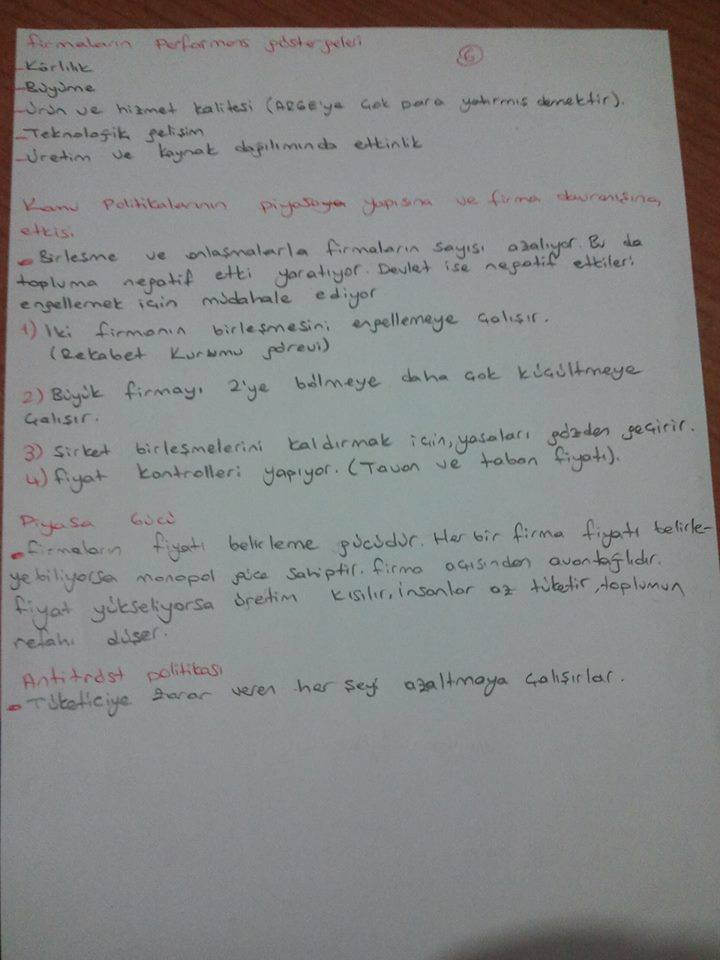 Firmaların Performans göstergeleri
6
-Kârlılık
-Büyüme
-Ürün ve hizmet kalitesi (ARGE'ye çok para yatırmış demektir).
-Teknolojik gelişim
-Üretim ve kaynak dağılımında etkinlik
Kamu Politikalarının piyasaya yapısına ve firma davranışına,
etkisi
Birleşme ve anlaşmalarla firmaların sayısı azalıyor. Bu da
topluma negatif etki yaratıyor. Devlet ise negatif etkileri
engellemek için müdahale ediyor
1) İki firmanın birleşmesini engellemeye çalışır.
(Rekabet Kurumu görevi)
2) Büyük firmayı 2'ye bölmeye daha çok küçültmeye
çalışır.
3) Şirket birleşmelerini kaldırmak için, yasaları gözden geçirir.
4) fiyat kontrolleri yapıyor. (Tavan ve taban fiyatı).
Piyasa Gücü
Firmaların fiyatı belirleme gücüdür. Her bir firma fiyatı belirle-
yebiliyorsa monopol güce sahiptir. firma açısından avantajlıdır.
fiyat yükseliyorsa üretim kısılır, insanlar az tüketir, toplumun
refahı düşer.
Antitröst politikası
Tüketiciye zarar veren her şeyi azaltmaya çalışırlar.